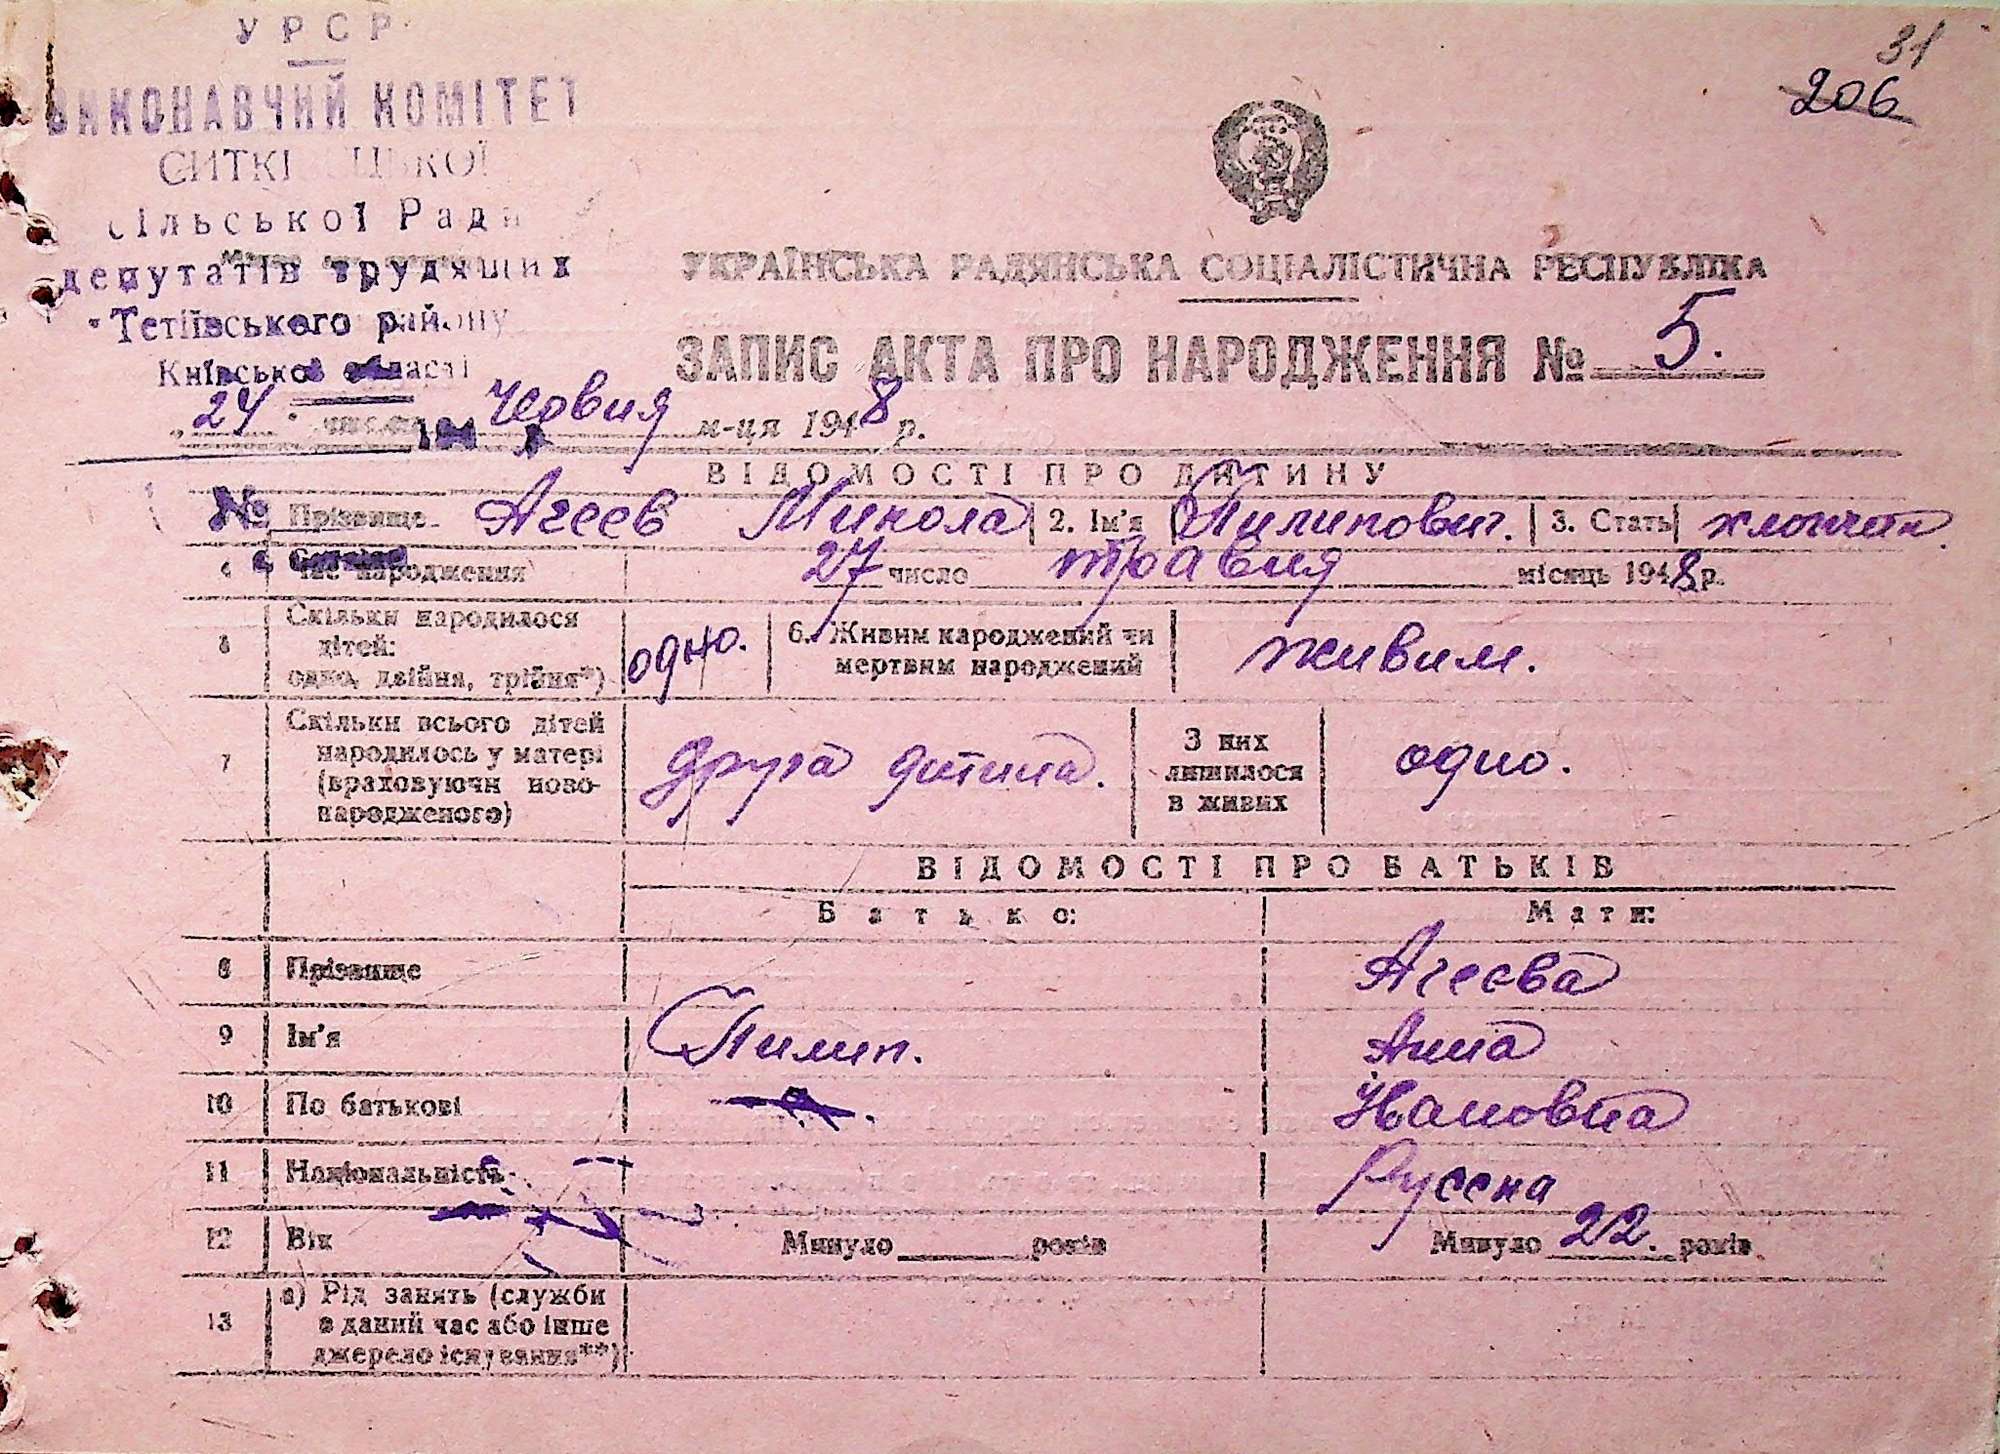 31
206
УРСР
ВИКОНАВЧИЙ КОМІТЕТ
сільської Ради
депутатів трудящих
Тетіївського району
Київської області
УКРАЇНСЬКА РАДЯНСЬКА СОЦІАЛІСТИЧНА РЕСПУБЛІКА
ЗАПИС АКТА ПРО НАРОДЖЕННЯ № 5.
„24" числа Червня м-ця 1948 р.
ВІДОМОСТІ ПРО ДИТИНУ
№ Прізвище Агеев Микола 2. Ім'я Пилипович. 3. Стать хлопчик.
4 Час народження 27 число травня місяць 1948 р.
5 Скільки народилося
дітей:
одно, двійня, трійня*) одно. 6. Живим народжений чи
мертвим народжений живим.
7 Скільки всього дітей
народилось у матері
(враховуючи ново-
народженого) друга дитина. З них
лишилося
в живих одно.
ВІДОМОСТІ ПРО БАТЬКІВ
Батько: Мати:
8 Прізвище Агеева
9 Ім'я Пилип. Анна
10 По батькові Івановна
11 Національність Русска
12 Вік Минуло років Минуло 22. років
13 а) Рід занять (служби
в даний час або інше
джерело існування**)